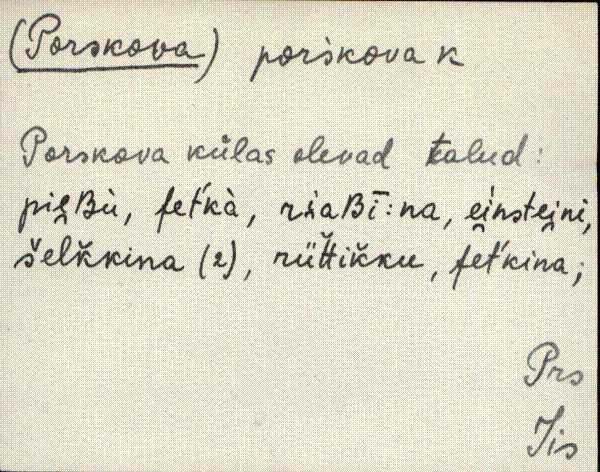 (Porskova) porskova k
Porskova külas olevad talud:
pieBù, fet'kà, riaBī:na, einsteini,
šelkkina (2), rüttikku, fet'kina;
Prs
Jis